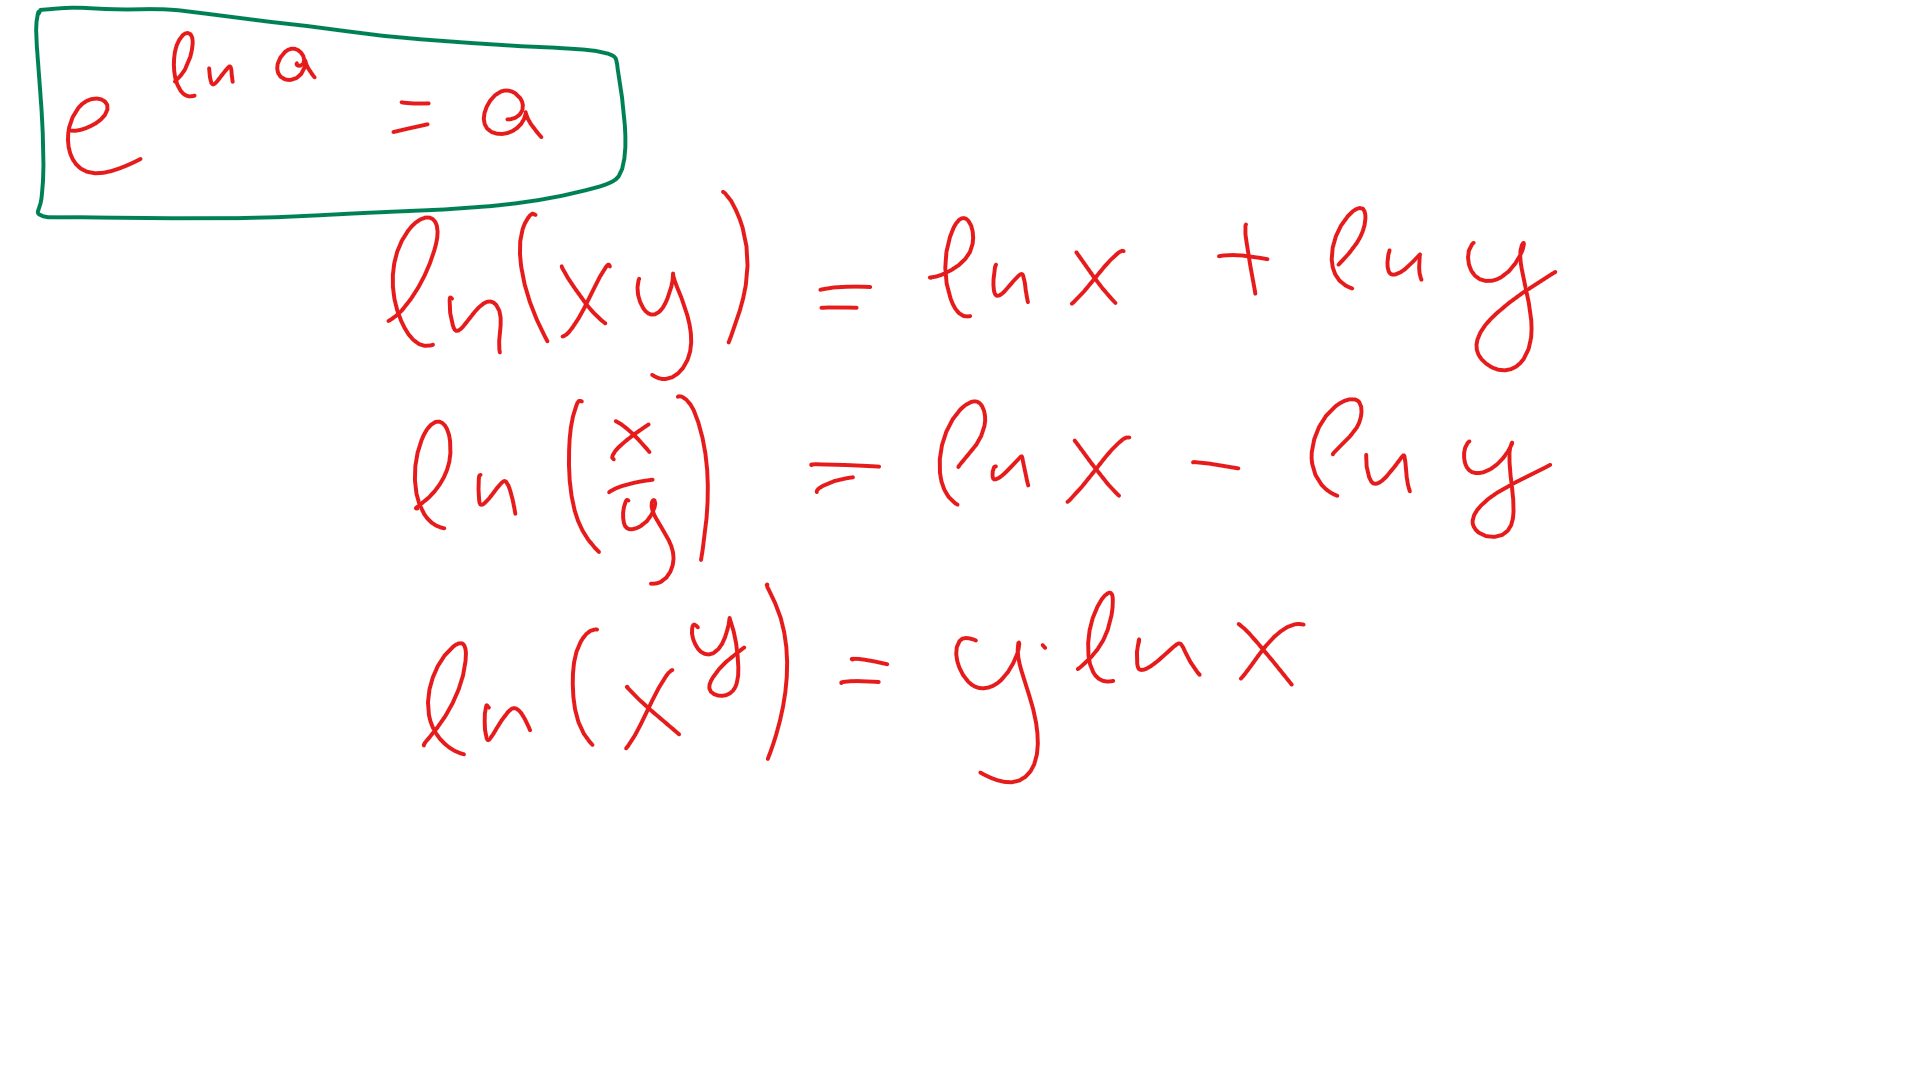 e^{ln a} = a
ln(xy) = ln x + ln y
ln(x/y) = ln x - ln y
ln(x^y) = y · ln x